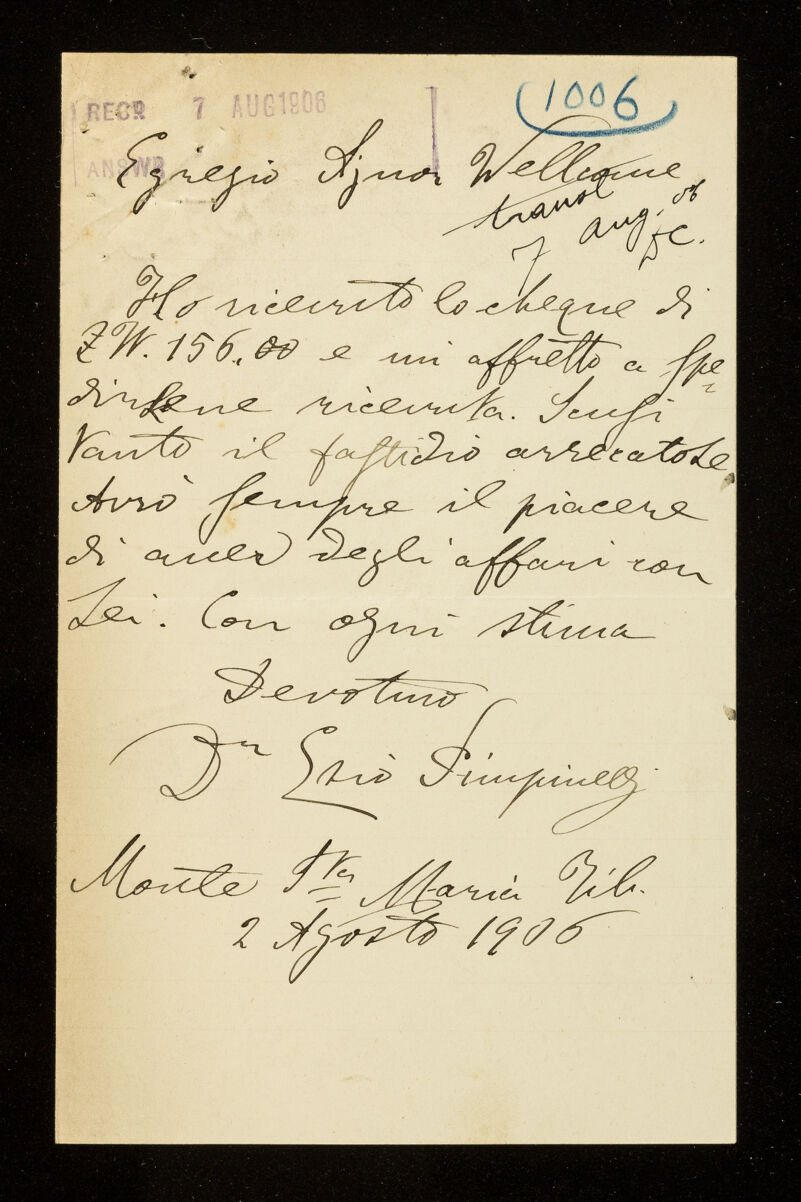 RECD 7 AUG 1906
1006
ANSWD
Egregio Signor Wellcome
transl
7 Aug. 06
Ho ricevuto lo cheque di
N. 156.00 e mi affretto a spe=
dirLene ricevuta. Scusi
tanto il fastidio arrecatoLe
Avrò sempre il piacere
di aver degli affari con
Lei. Con ogni stima
Devotmo
Dr Ezio Pimpinelli
Monte Sta Maria Tib.
2 Agosto 1906